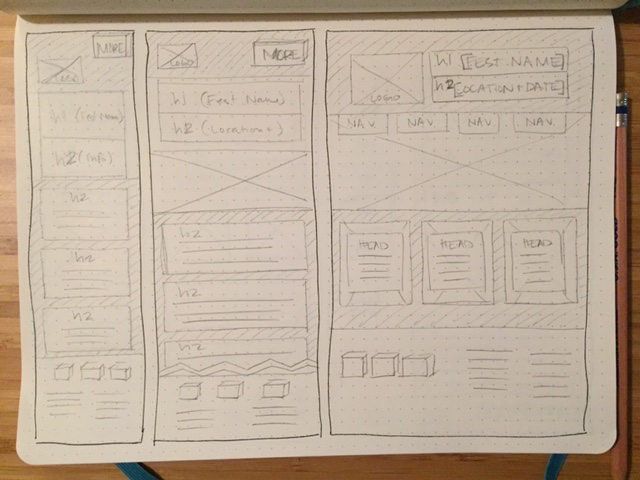 MORE
LOGO
h1 (Fest name)
h2 (Info)
h2
h2
h2
MORE
LOGO
h1 (Fest Name)
h2 (Location+)
h2
h2
h2
LOGO
h1 [FEST. NAME]
h2 [LOCATION + DATE]
NAV. NAV. NAV. NAV.
HEAD HEAD HEAD